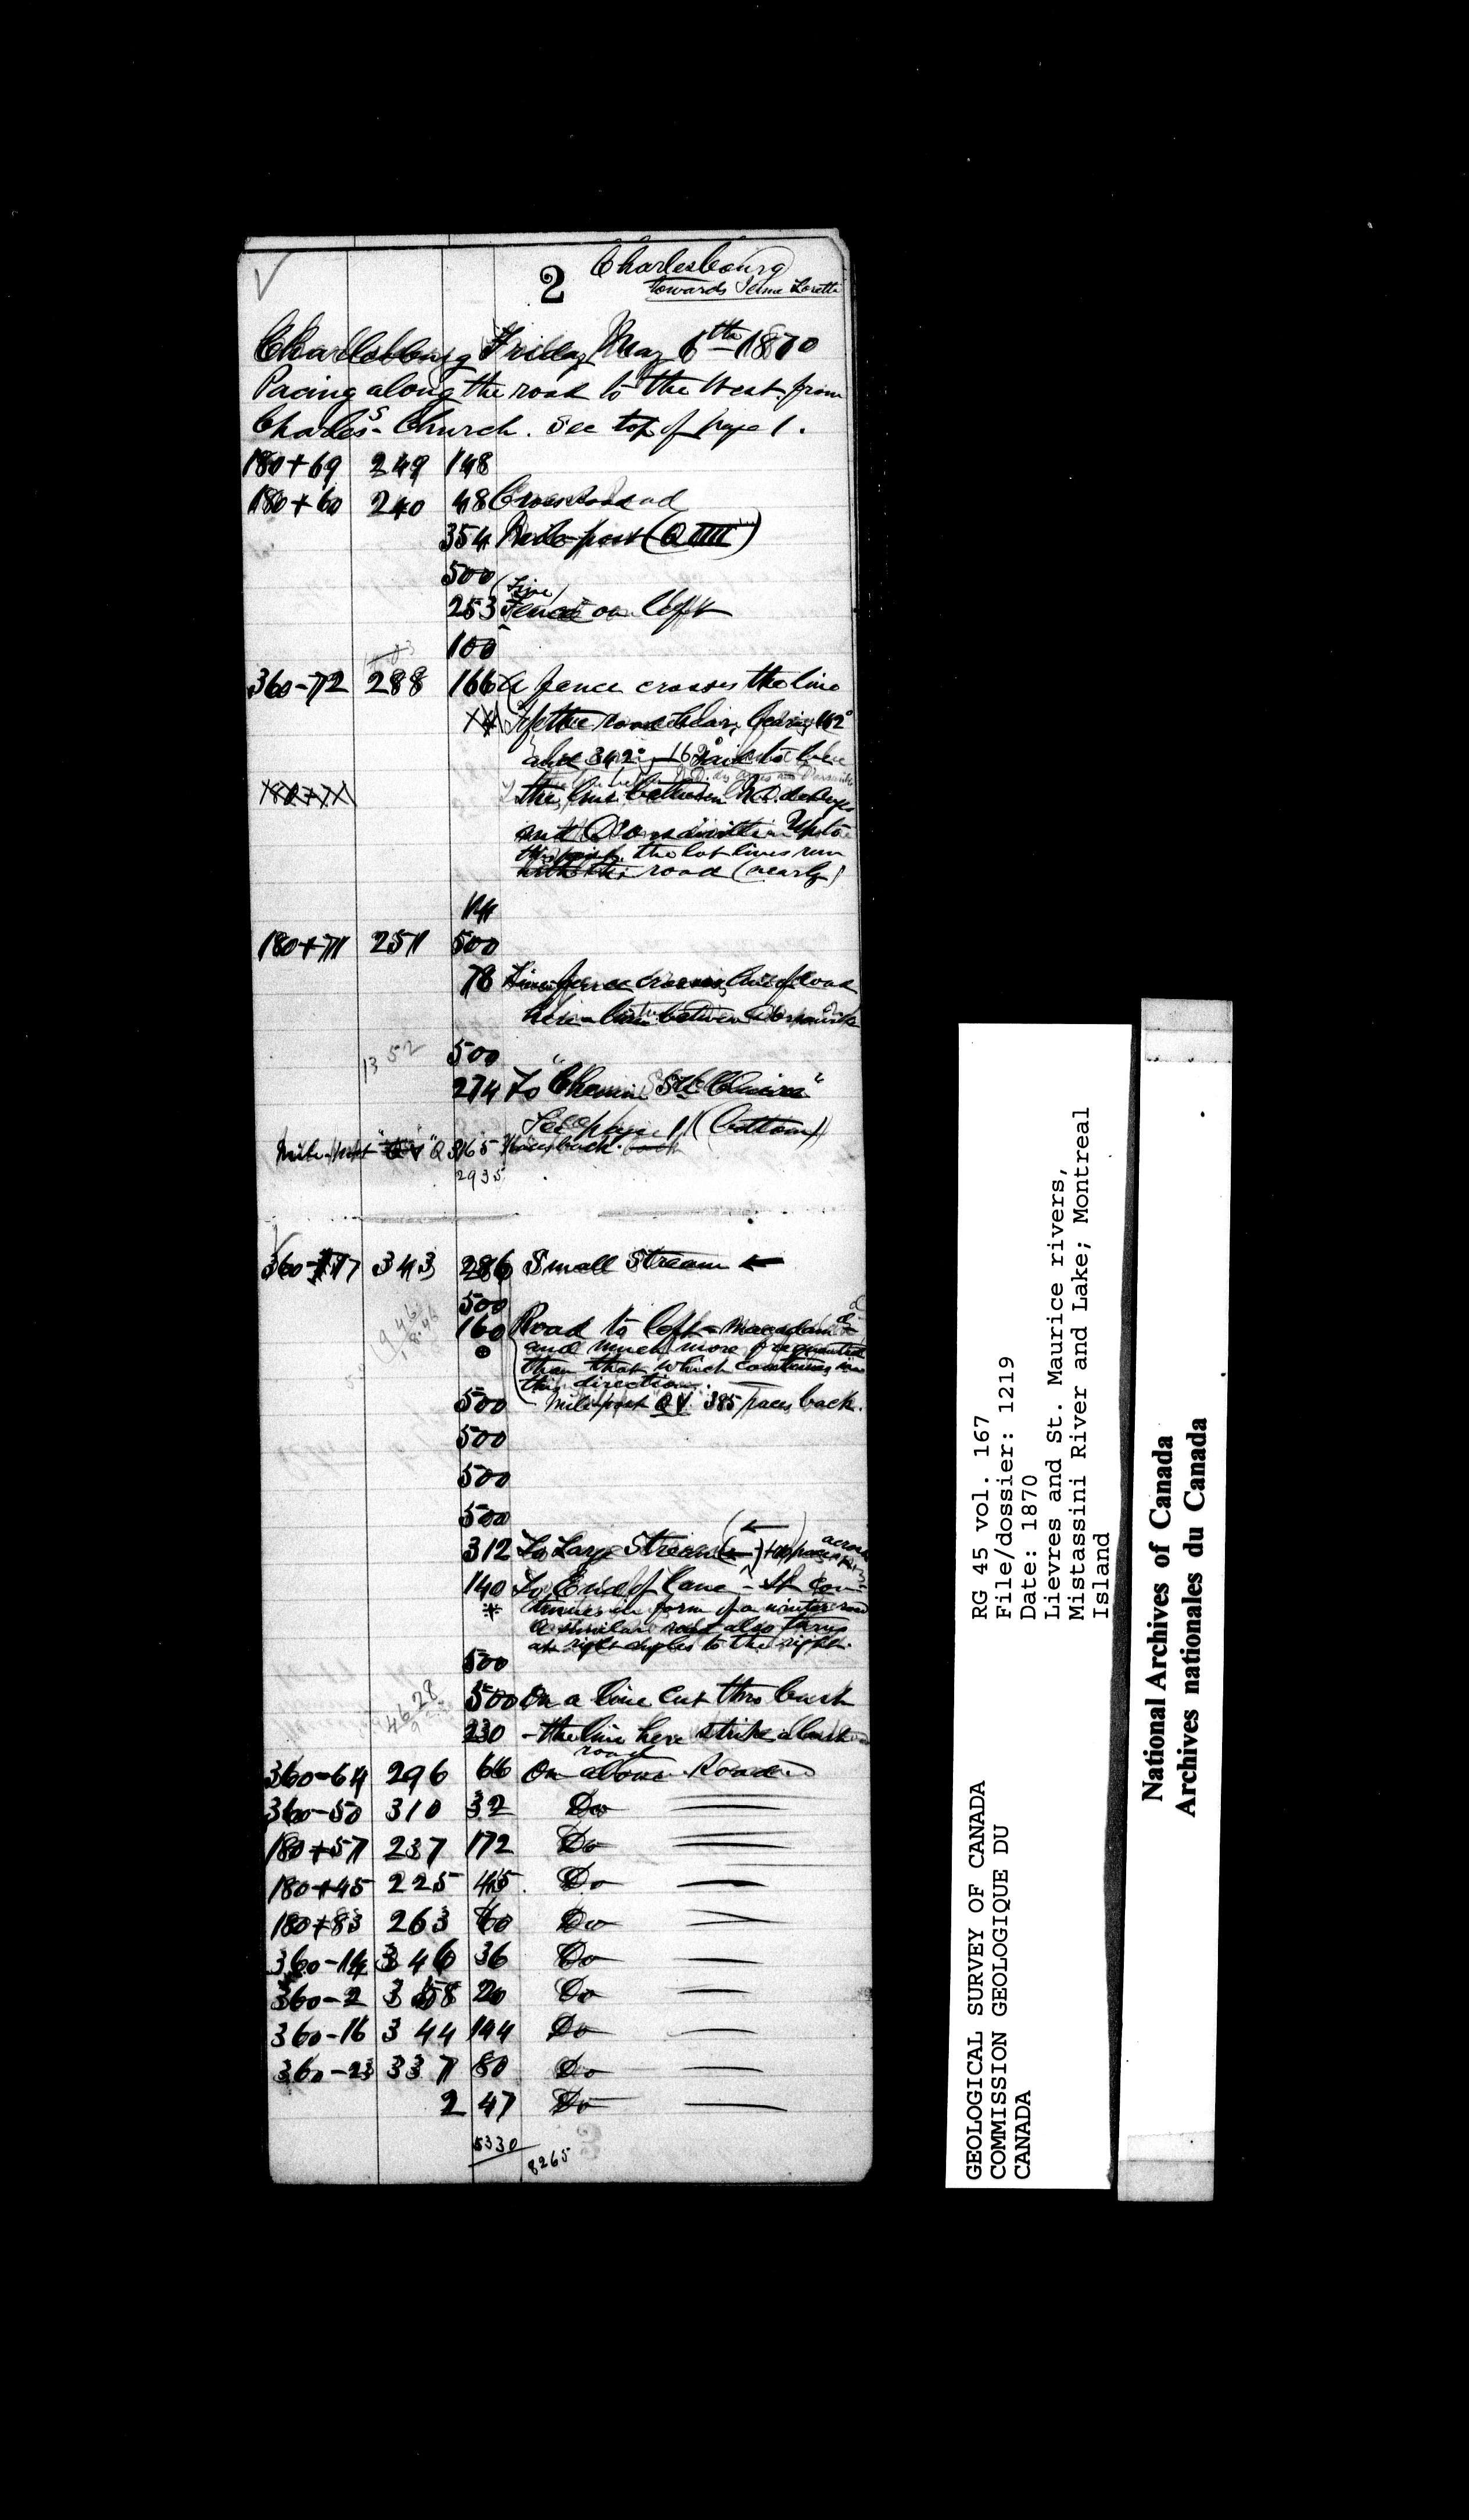 2
Charlesbourg
towards Jeune Lorette
Charlesbourg Friday May 6th 1870
Pacing along the road to the West from
Charles- Church. See top of page 1.
180+69 249 148
180+60 240 48 Cross Road
354 Mile-post (Q IIII)
500
(Line)
253 Fence on left
100
360-72 288 166 A fence crosses the line
of the road here, bearing 162°
and 342°
the line between N.D. des Anges
and Up to
this point the lot lines run
with the road (nearly)
114
180+71 251 500
78 Line fence crosses line of road
here - line between
1352
500
274 To "Chemin St. Claire"
See page 1 (bottom)
Mile-post "Q 165 Paces back.
2935
360-17 343 286 Small Stream ←
500
160 Road to left - Macadam
and much more frequented
than that which continues in
this direction.
Mile-post Q V. 385 paces back.
500
500
500
500
312 To Large Stream (←) across
140 To End of lane - It con-
tinues in form of a winter road
A similar road also turns
at right angles to the right.
500
4628
500 On a line cut thro bush
230 - the line here strikes a bush
road
360-64 296 66 On above Road
360-50 310 32 Do
180+57 237 172 Do
180+45 225 45 Do
180+83 263 60 Do
360-14 346 36 Do
360-2 358 20 Do
360-16 344 144 Do
360-23 337 80 Do
247 Do
5330
8265
GEOLOGICAL SURVEY OF CANADA
COMMISSION GEOLOGIQUE DU
CANADA
RG 45 vol. 167
File/dossier: 1219
Date: 1870
Lievres and St. Maurice rivers,
Mistassini River and Lake; Montreal
Island
National Archives of Canada
Archives nationales du Canada